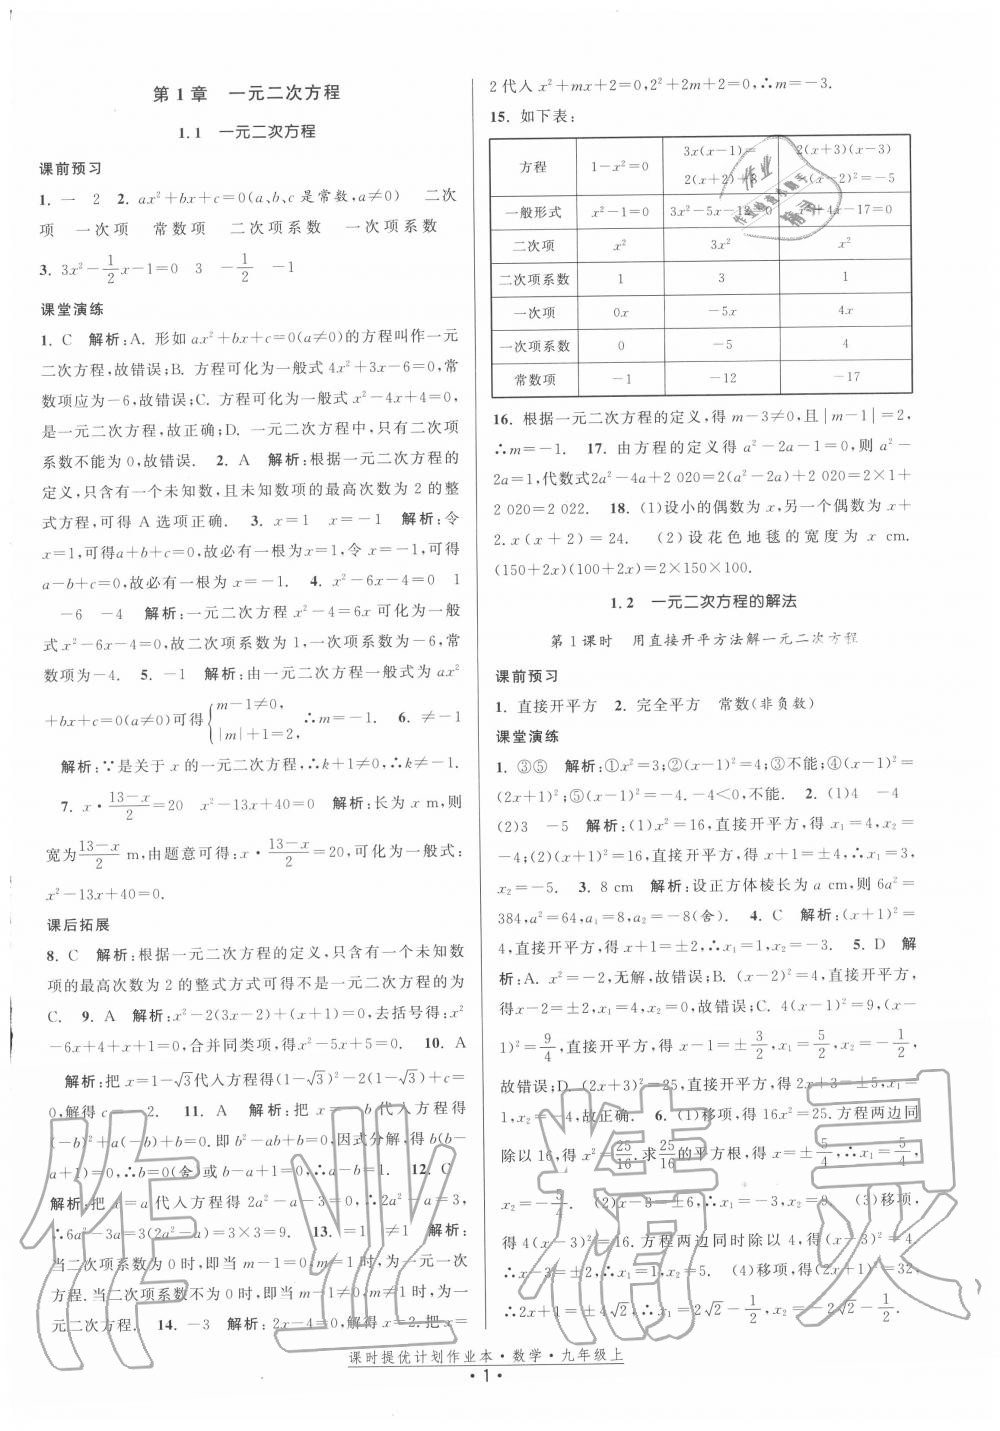 第1章　一元二次方程
1.1　一元二次方程
课前预习
1. 一　2　2. ax²+bx+c=0(a、b、c是常数,a≠0)　二次
项　一次项　常数项　二次项系数　一次项系数
3. 3x²-1/2x-1=0　3　-1/2　-1
课堂演练
1. C　解析:A. 形如ax²+bx+c=0(a≠0)的方程叫作一元
二次方程,故错误;B. 方程可化为一般式4x²+3x-6=0,常
数项应为-6,故错误;C. 方程可化为一般式x²-4x+4=0,
是一元二次方程,故正确;D. 一元二次方程中,只有二次项
系数不能为0,故错误. 2. A　解析:根据一元二次方程的
定义,只含有一个未知数,且未知数项的最高次数为2的整
式方程,可得A选项正确. 3. x=1　x=-1　解析:令
x=1,可得a+b+c=0,故必有一根为x=1,令x=-1,可得
a-b+c=0,故必有一根为x=-1. 4. x²-6x-4=0　1
-6　-4　解析:一元二次方程x²-4=6x可化为一般
式x²-6x-4=0,故二次项系数为1,一次项系数为-6,常
数项为-4. 5. -1　解析:由一元二次方程一般式为ax²
+bx+c=0(a≠0)可得{m-1≠0, |m|+1=2, ∴m=-1. 6. ≠-1
解析:∵是关于x的一元二次方程,∴k+1≠0,∴k≠-1.
7. x·(13-x)/2=20　x²-13x+40=0　解析:长为x m,则
宽为(13-x)/2 m,由题意可得:x·(13-x)/2=20,可化为一般式:
x²-13x+40=0.
课后拓展
8. C　解析:根据一元二次方程的定义,只含有一个未知数
项的最高次数为2的整式方式可得不是一元二次方程的为
C. 9. A　解析:x²-2(3x-2)+(x+1)=0,去括号得:x²
-6x+4+x+1=0,合并同类项,得x²-5x+5=0. 10. A
解析:把x=1-√3代入方程得(1-√3)²-2(1-√3)+c=
0,解得c=-2. 11. A　解析:把x=-b代入方程得
(-b)²+a(-b)+b=0.即b²-ab+b=0,因式分解,得b(b-
a+1)=0,∴b=0(舍)或b-a+1=0,∴a-b=1. 12. C
解析:把x=a代入方程得2a²-a-3=0,∴2a²-a=3,
∴6a²-3a=3(2a²-a)=3×3=9. 13. =1　≠1　解析:
当二次项系数为0时,即当m-1=0,m=1时,为一元一次
方程.当二次项系数不为0时,即当m-1≠0,m≠1时,为一
元二次方程. 14. -3　解析:2x-4=0,解得x=2.把x=
2代入x²+mx+2=0,2²+2m+2=0,∴m=-3.
15. 如下表:
方程　1-x²=0　3x(x-1)= 2(x+2)+8　2(x+3)(x-3) +(x-2)²=-5
一般形式　x²-1=0　3x²-5x-12=0　x²+4x-17=0
二次项　x²　3x²　x²
二次项系数　1　3　1
一次项　0x　-5x　4x
一次项系数　0　-5　4
常数项　-1　-12　-17
16. 根据一元二次方程的定义,得m-3≠0,且|m-1|=2,
∴m=-1. 17. 由方程的定义得a²-2a-1=0,则a²-
2a=1,代数式2a²-4a+2 020=2(a²-2a)+2 020=2×1+
2 020=2 022. 18. (1)设小的偶数为x,另一个偶数为x+
2.x(x+2)=24.　(2)设花色地毯的宽度为x cm.
(150+2x)(100+2x)=2×150×100.
1.2　一元二次方程的解法
第1课时　用直接开平方法解一元二次方程
课前预习
1. 直接开平方　2. 完全平方　常数(非负数)
课堂演练
1. ③⑤　解析:①x²=3;②(x-1)²=4;③不能;④(x-1)²=
(2x+1)²;⑤(x-1)²=-4.-4<0,不能. 2. (1)4　-4
(2)3　-5　解析:(1)x²=16,直接开平方,得x₁=4,x₂=
-4;(2)(x+1)²=16,直接开平方,得x+1=±4,∴x₁=3,
x₂=-5. 3. 8 cm　解析:设正方体棱长为a cm,则6a²=
384,a²=64,a₁=8,a₂=-8(舍). 4. C　解析:(x+1)²=
4,直接开平方,得x+1=±2,∴x₁=1,x₂=-3. 5. D　解
析:A. x²=-2,无解,故错误;B. (x-2)²=4,直接开平方,
得x-2=±2,x₁=4,x₂=0,故错误;C. 4(x-1)²=9,(x-
1)²=9/4,直接开平方,得x-1=±3/2,x₁=5/2,x₂=-1/2,
故错误;D. (2x+3)²=25,直接开平方,得2x+3=±5,x₁=
1,x₂=-4,故正确. 6. (1)移项,得16x²=25.方程两边同
除以16,得x²=25/16.求25/16的平方根,得x=±5/4,∴x₁=5/4,
x₂=-5/4.　(2)x-3=±6,∴x₁=-3,x₂=9.　(3)移项,
得4(x-3)²=16.方程两边同时除以4,得(x-3)²=4.
∴x-3=±2,∴x₁=1,x₂=5.　(4)移项,得(2x+1)²=32,
∴2x+1=±4√2,∴x₁=2√2-1/2,x₂=-2√2-1/2.
课时提优计划作业本·数学·九年级上
·1·
作业精灵